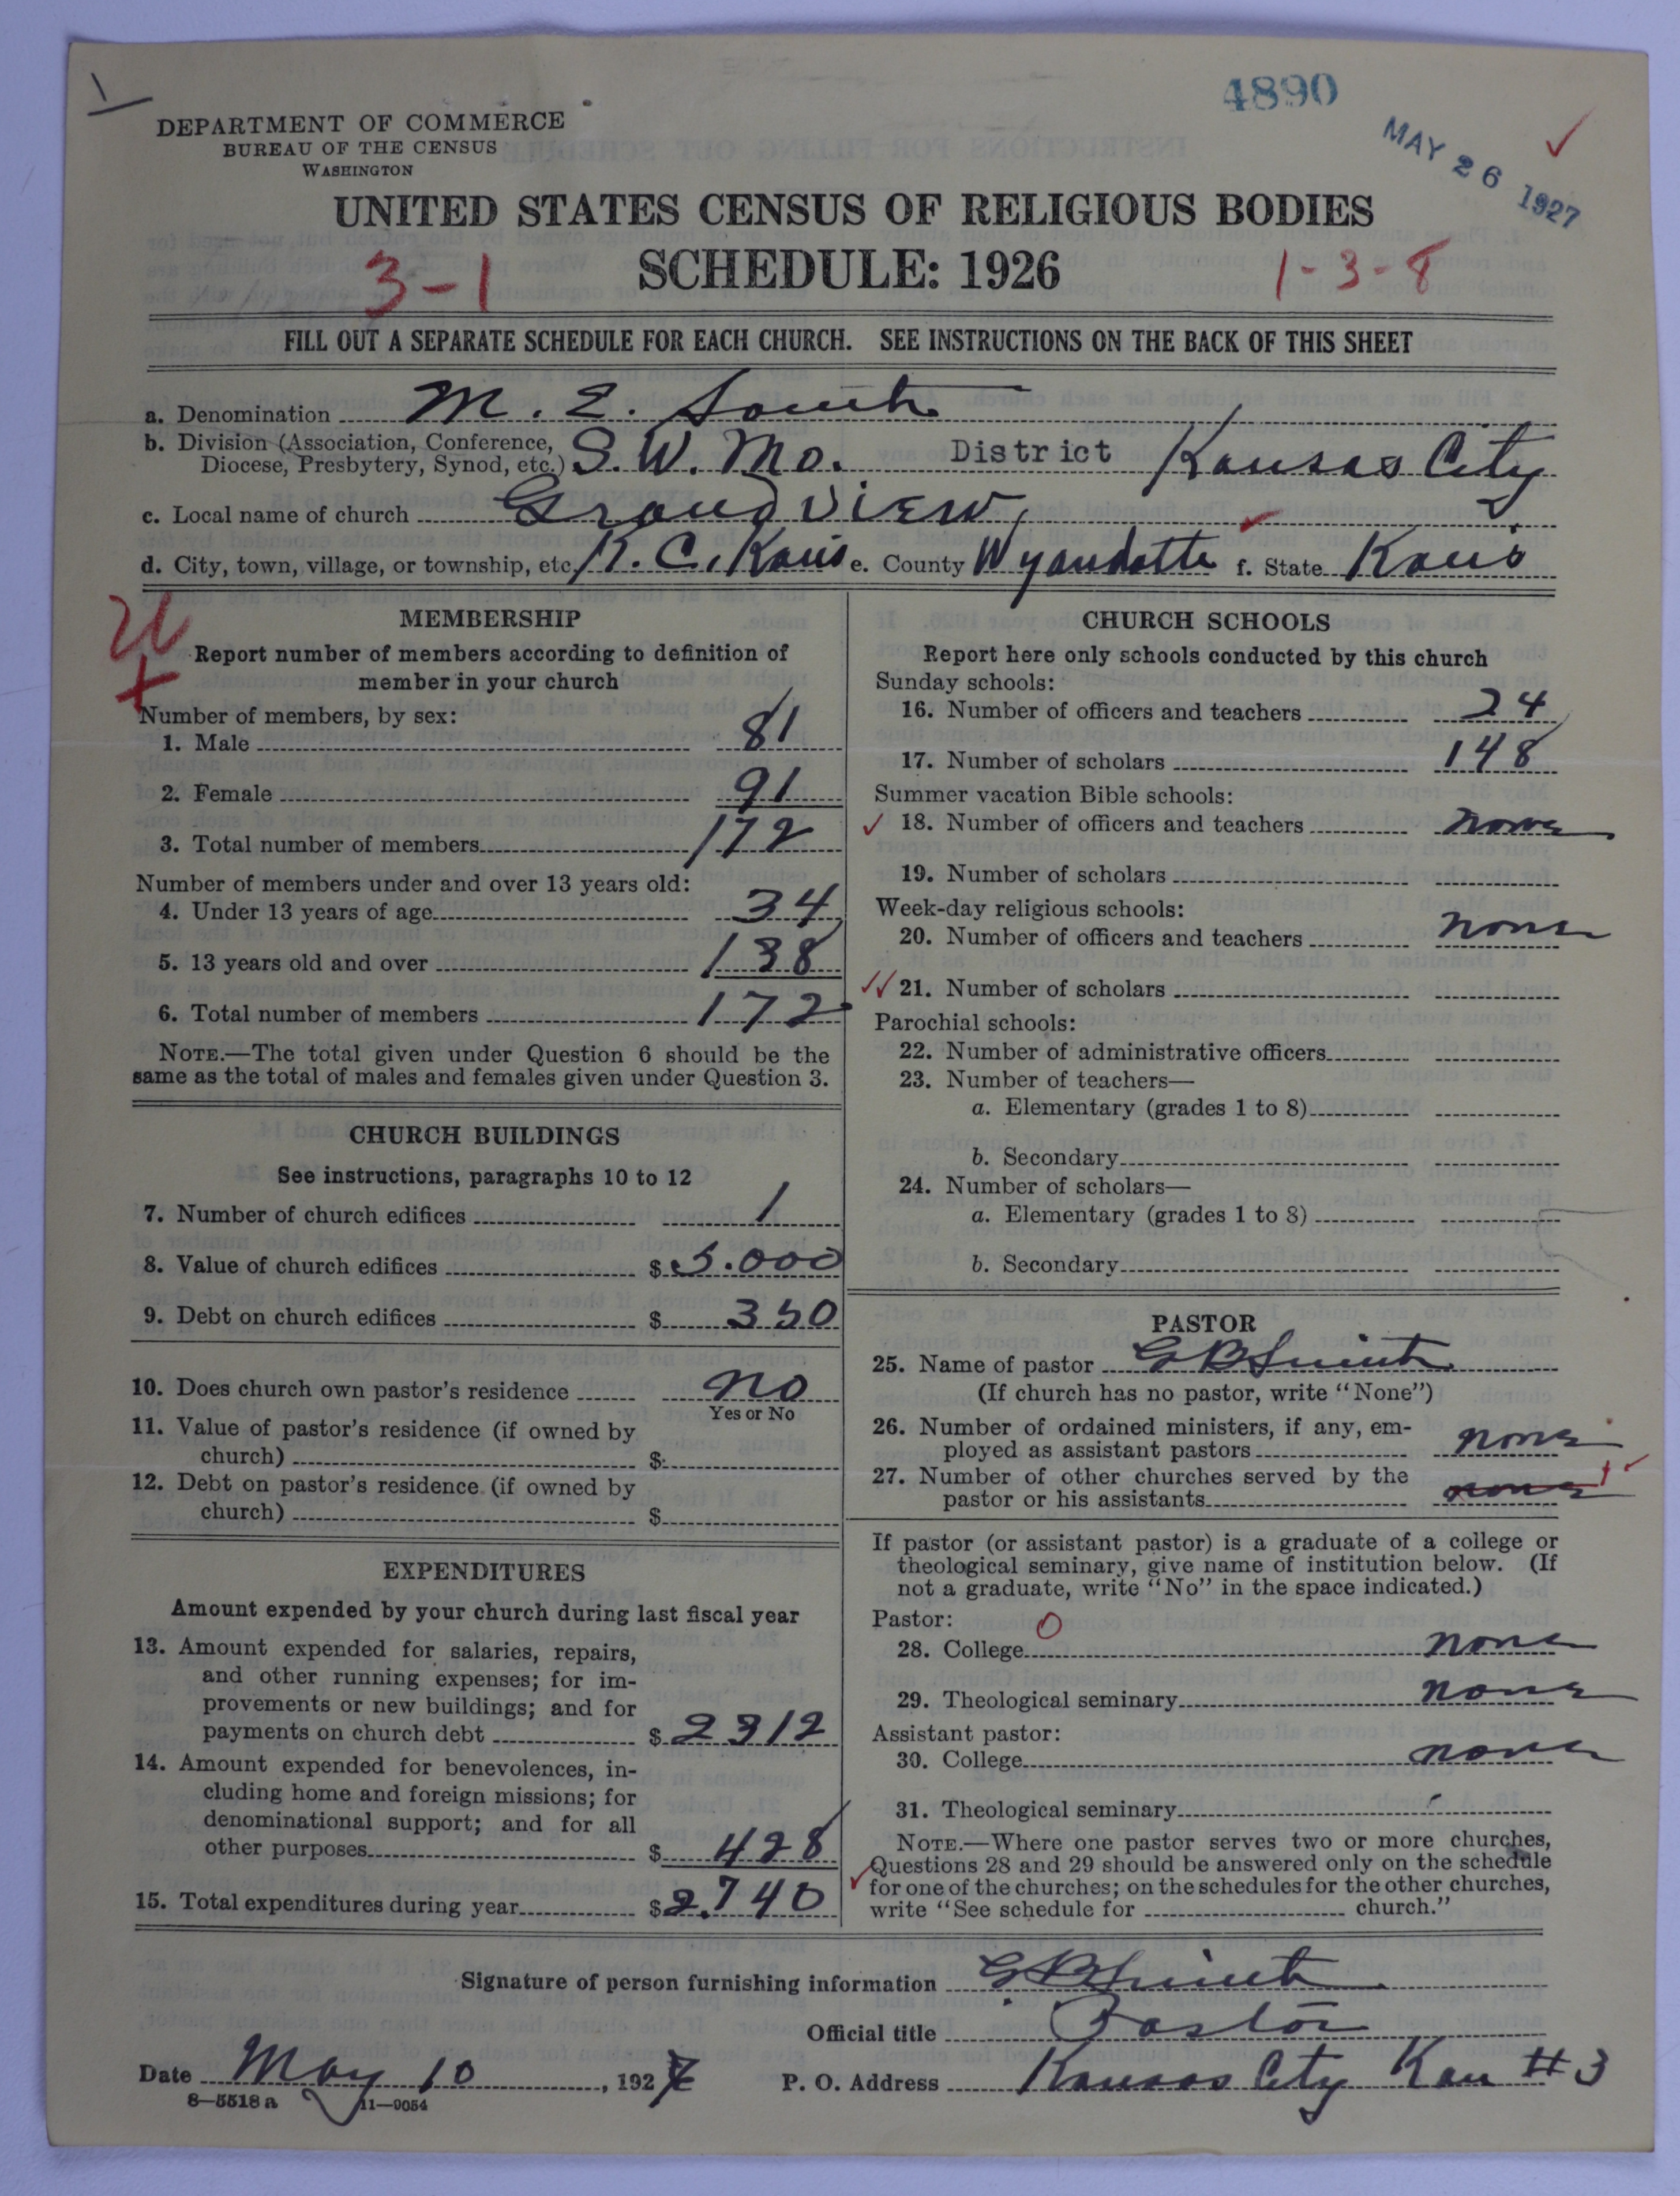 4890
MAY 26 1927
DEPARTMENT OF COMMERCE
BUREAU OF THE CENSUS
WASHINGTON
UNITED STATES CENSUS OF RELIGIOUS BODIES
SCHEDULE: 1926
3-1
1-3-8
FILL OUT A SEPARATE SCHEDULE FOR EACH CHURCH. SEE INSTRUCTIONS ON THE BACK OF THIS SHEET
a. Denomination M. E. South
b. Division (Association, Conference, Diocese, Presbytery, Synod, etc.) S. W. Mo. District Kansas City
c. Local name of church Grandview
d. City, town, village, or township, etc. K. C. Kans e. County Wyandotte f. State Kans
MEMBERSHIP
Report number of members according to definition of
member in your church
Number of members, by sex:
1. Male 81
2. Female 91
3. Total number of members 172
Number of members under and over 13 years old:
4. Under 13 years of age 34
5. 13 years old and over 138
6. Total number of members 172
NOTE.—The total given under Question 6 should be the
same as the total of males and females given under Question 3.
CHURCH BUILDINGS
See instructions, paragraphs 10 to 12
7. Number of church edifices 1
8. Value of church edifices $5.000
9. Debt on church edifices $350
10. Does church own pastor's residence no
Yes or No
11. Value of pastor's residence (if owned by
church) $
12. Debt on pastor's residence (if owned by
church) $
EXPENDITURES
Amount expended by your church during last fiscal year
13. Amount expended for salaries, repairs,
and other running expenses; for im-
provements or new buildings; and for
payments on church debt $2312
14. Amount expended for benevolences, in-
cluding home and foreign missions; for
denominational support; and for all
other purposes $428
15. Total expenditures during year $2,740
CHURCH SCHOOLS
Report here only schools conducted by this church
Sunday schools:
16. Number of officers and teachers 24
17. Number of scholars 148
Summer vacation Bible schools:
18. Number of officers and teachers none
19. Number of scholars
Week-day religious schools:
20. Number of officers and teachers none
21. Number of scholars
Parochial schools:
22. Number of administrative officers
23. Number of teachers—
a. Elementary (grades 1 to 8)
b. Secondary
24. Number of scholars—
a. Elementary (grades 1 to 8)
b. Secondary
PASTOR
25. Name of pastor G B Smith
(If church has no pastor, write "None")
26. Number of ordained ministers, if any, em-
ployed as assistant pastors none
27. Number of other churches served by the
pastor or his assistants none 1
If pastor (or assistant pastor) is a graduate of a college or
theological seminary, give name of institution below. (If
not a graduate, write "No" in the space indicated.)
Pastor: 0
28. College none
29. Theological seminary none
Assistant pastor:
30. College none
31. Theological seminary
NOTE.—Where one pastor serves two or more churches,
Questions 28 and 29 should be answered only on the schedule
for one of the churches; on the schedules for the other churches,
write "See schedule for church."
Signature of person furnishing information G B Smith
Official title Pastor
Date May 10, 1927 P. O. Address Kansas City Kan #3
8—5518 a 11—9054